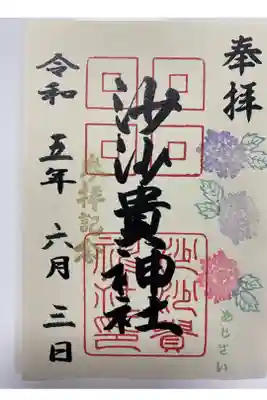 奉拝
あじさい
沙沙貴神社
参拝記念
令和五年六月三日